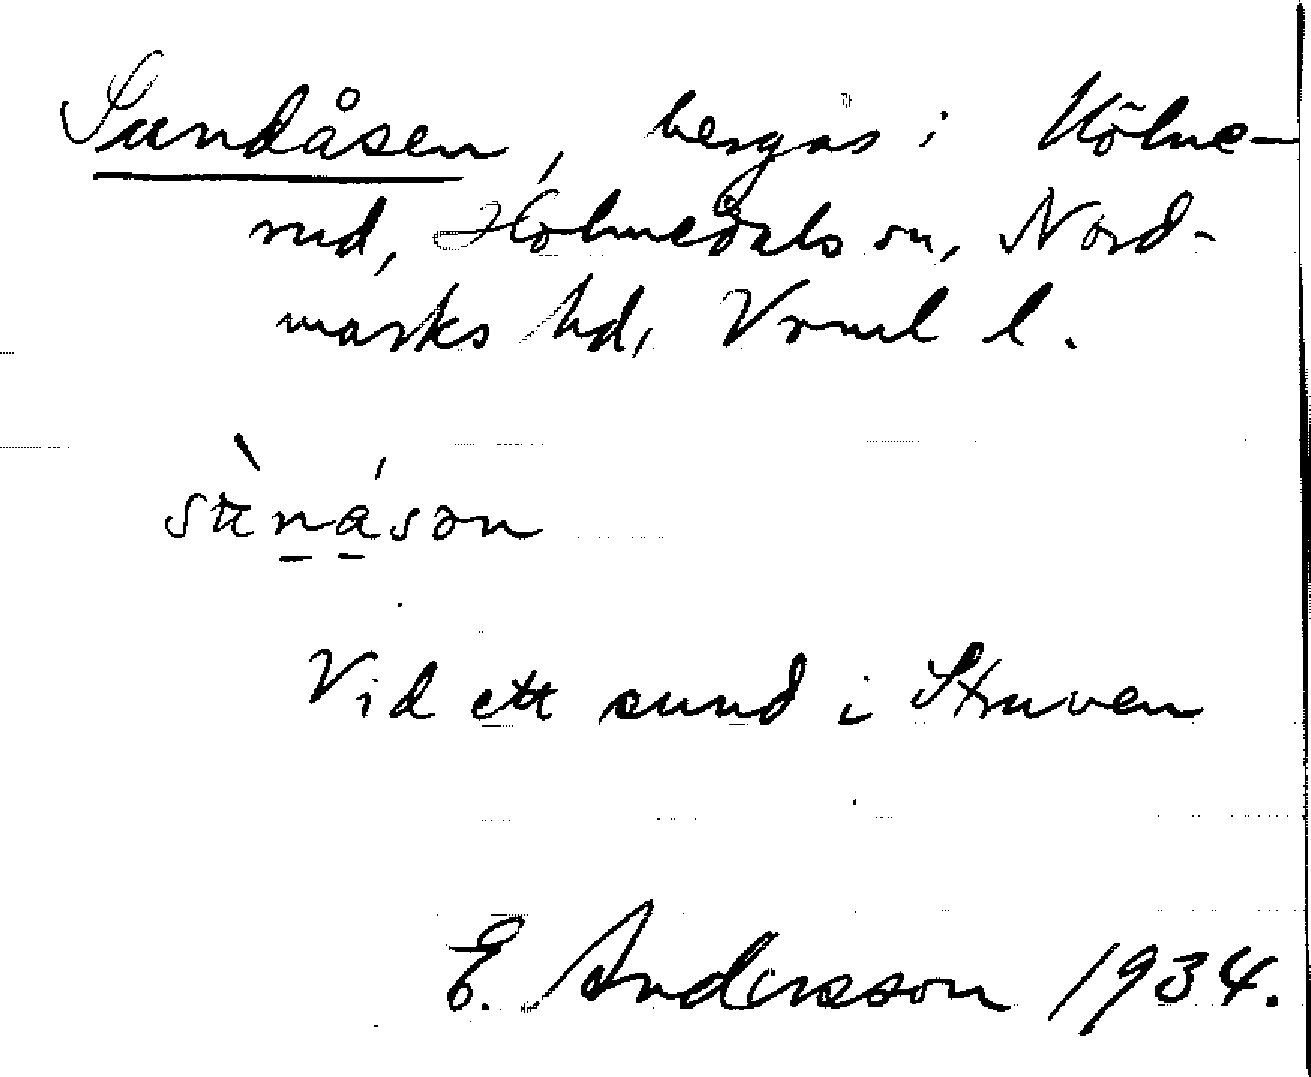 Sundåsen, bergås i Kölne-
rud, Holmedals sn, Nord-
marks hd, Vrml l.
Vid ett sund i Struven
E. Andersson 1934.